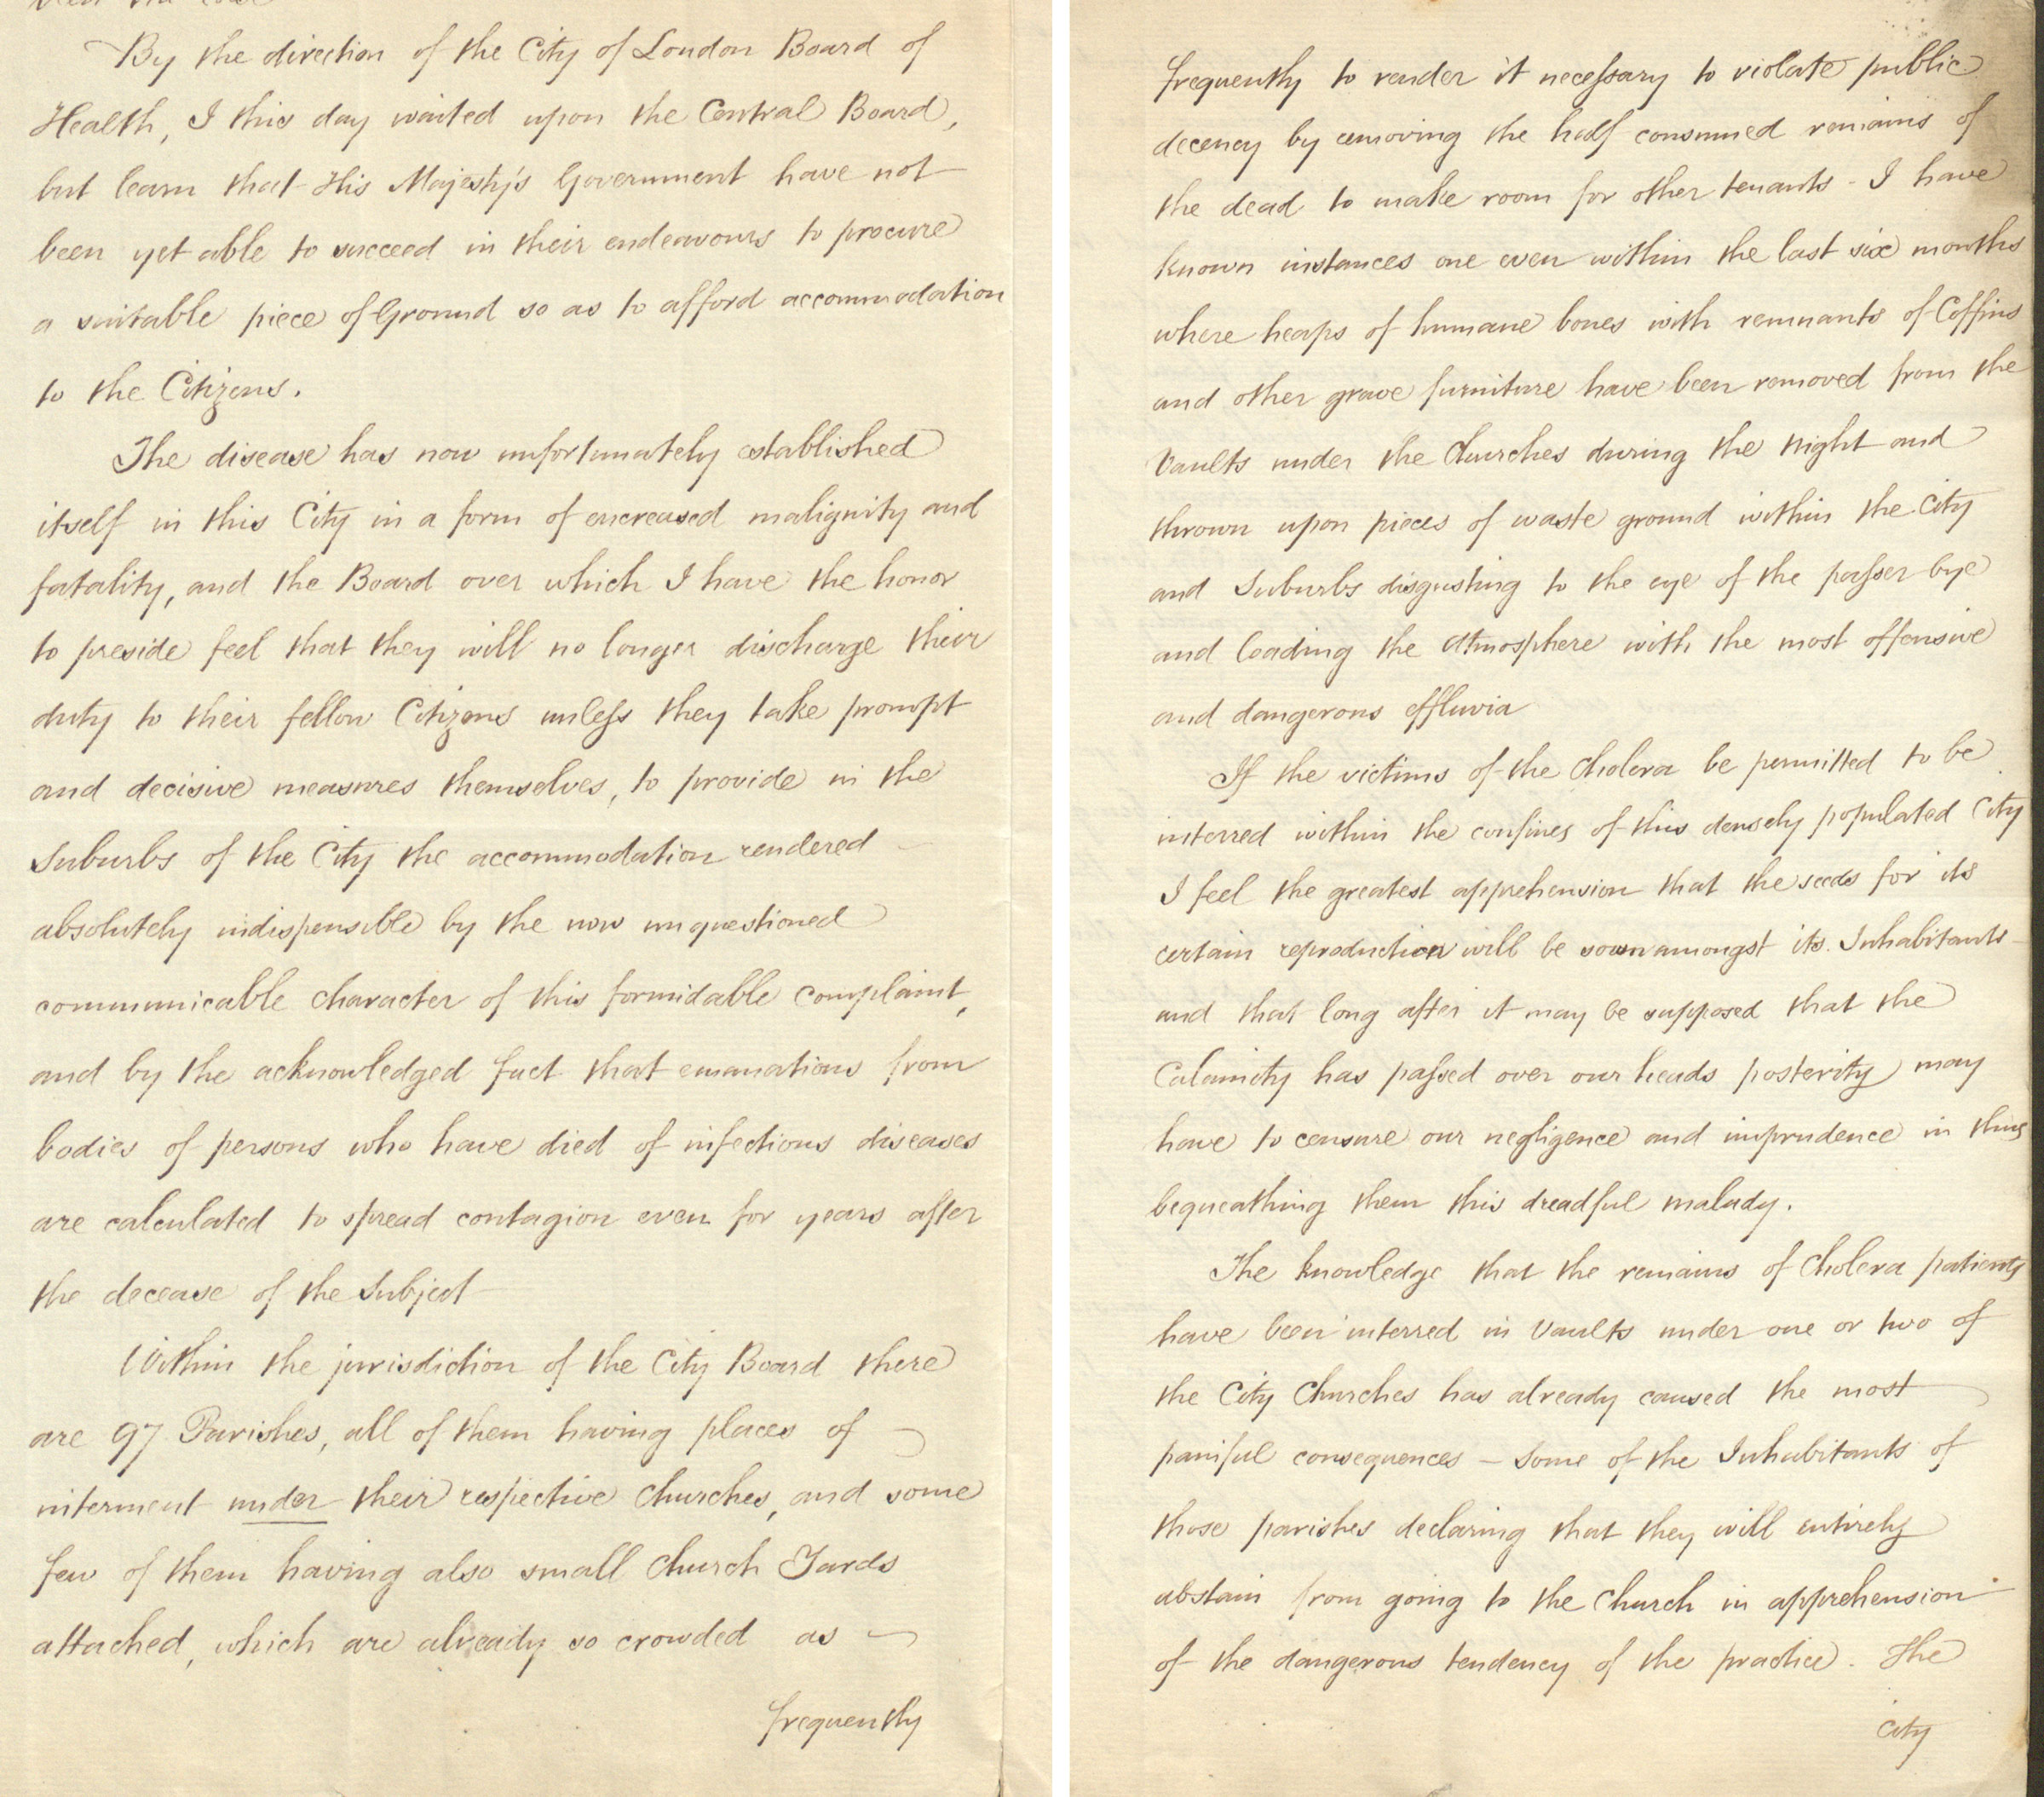 By the direction of the City of London Board of
Health, I this day waited upon the Central Board,
but learn that His Majesty's Government have not
been yet able to succeed in their endeavours to procure
a suitable piece of Ground so as to afford accommodation
to the Citizens.
The disease has now unfortunately established
itself in this City in a form of encreased malignity and
fatality, and the Board over which I have the honor
to preside feel that they will no longer discharge their
duty to their fellow Citizens unless they take prompt
and decisive measures themselves, to provide in the
Suburbs of the City the accommodation rendered
absolutely indispensible by the now unquestioned
communicable character of this formidable complaint,
and by the acknowledged fact that emanations from
bodies of persons who have died of infectious diseases
are calculated to spread contagion even for years after
the decease of the Subject
Within the jurisdiction of the City Board there
are 97 Parishes, all of them having places of
interment under their respective Churches, and some
few of them having also small Church Yards
attached, which are already so crowded as
frequently
frequently to render it necessary to violate public
decency by removing the half consumed remains of
the dead to make room for other tenants - I have
known instances one even within the last six months
where heaps of humane bones with remnants of Coffins
and other grave furniture have been removed from the
Vaults under the Churches during the Night and
thrown upon pieces of waste ground within the City
and Suburbs disgusting to the eye of the passer bye
and loading the Atmosphere with the most offensive
and dangerous effluvia
If the victims of the Cholera be permitted to be
interred within the confines of this densely populated City
I feel the greatest apprehension that the seeds for its
certain reproduction will be sown amongst its Inhabitants
and that long after it may be supposed that the
Calamity has passed over our heads posterity may
have to censure our negligence and imprudence in thus
bequeathing them this dreadful malady.
The knowledge that the remains of Cholera patients
have been interred in Vaults under one or two of
the City Churches has already caused the most
painful consequences - Some of the Inhabitants of
those parishes declaring that they will entirely
abstain from going to the Church in apprehension
of the dangerous tendency of the practice. The
City